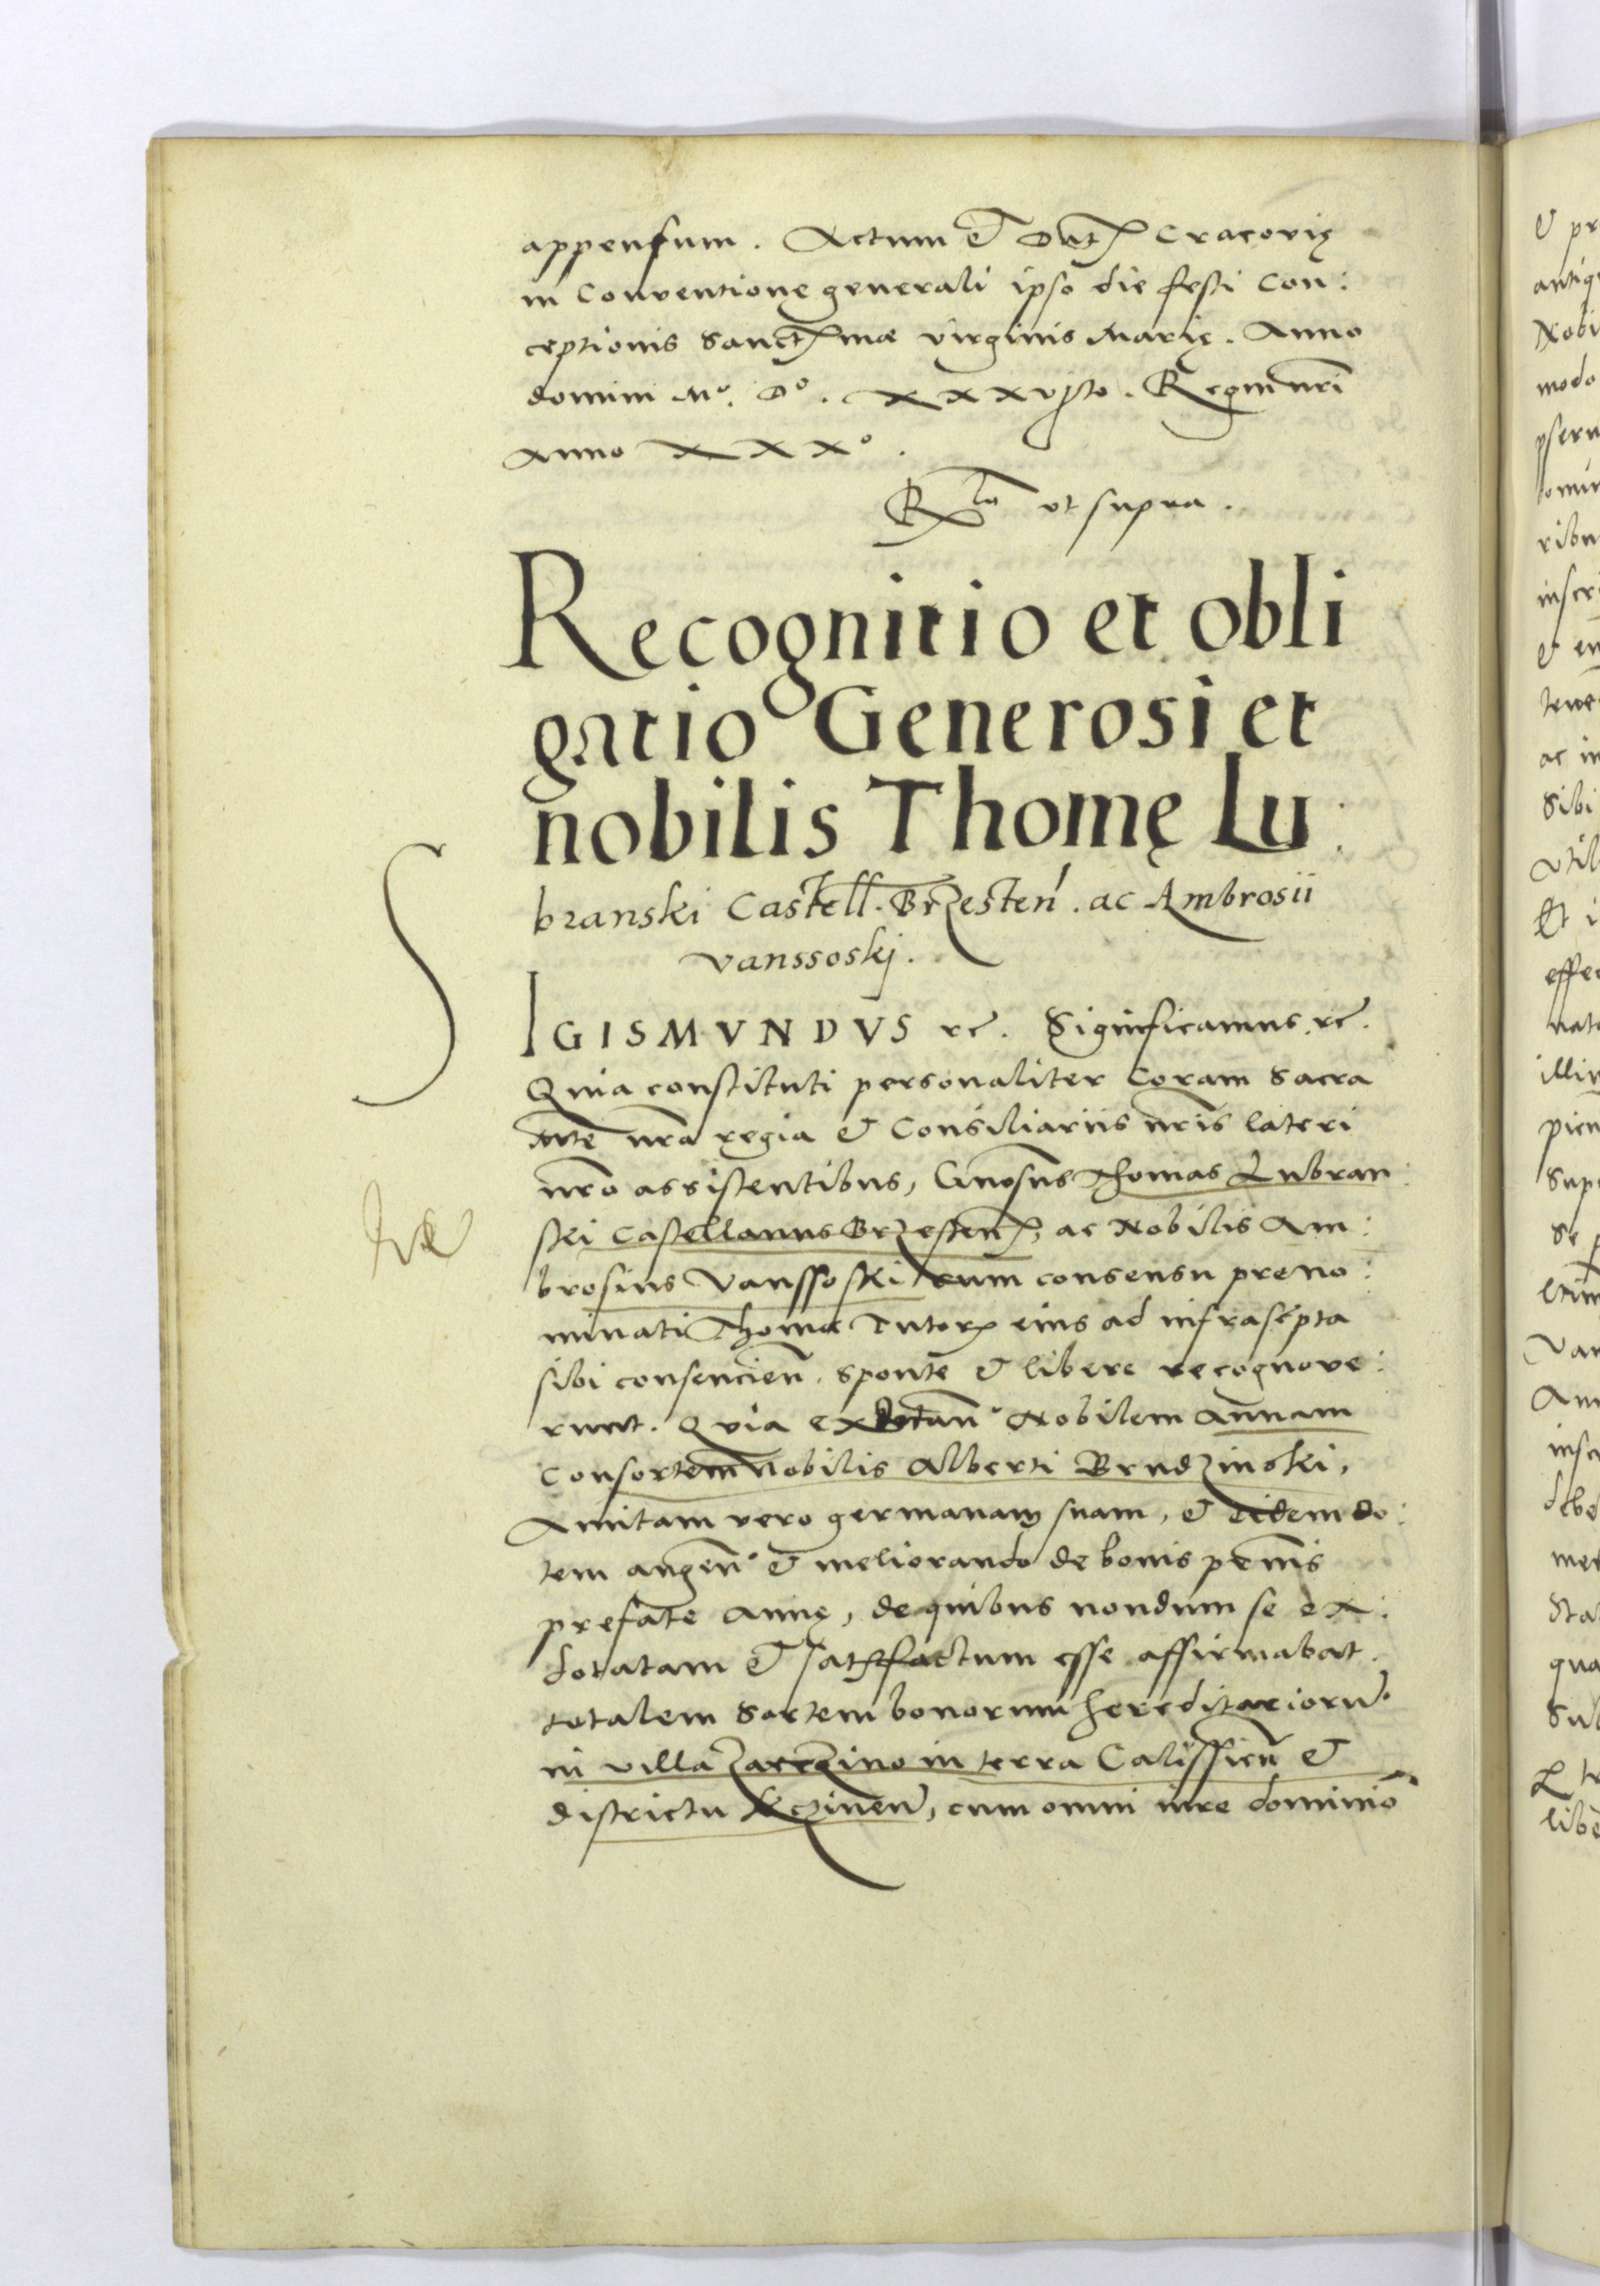 appensum. Actum et Dat Cracovię
in Conventionę generali ipso die festi Con:
ceptionis Sanctmæ virginis Marię. Anno
domini Mº. Dº. xxxvjto. Regni nri
Anno xxxº.
Rlo vt supra.
Recognitio et obli
gatio Generosi et
nobilis Thomę Lu:
branski Castell. Brzesten. ac Ambrosii
vanssoskj.
SIGISMVNDVS rc. Significamus rc.
Quia constituti personaliter Coram Sacra
Mte nra regia et Consiliariis nris lateri
nro assistentibus, Gnosus Thomas Lubran:
ski Castellanus Brzesten, ac Nobilis Am:
brosius Vanssoski cum consensu preno:
minati Thomæ Tutor eius ad infrascpta
sibi consencien. sponte et libere recognove:
runt. Quia exdotan Nobilem Annam
Consortem Nobilis Alberti Brudzinski,
Amitam vero germanam suam, et eidem do:
tem augen et meliorando de bonis pternis
prefate Annę, de quibus nondum se ex:
dotatam et satisfactum esse affirmabat.
totalem Sortem bonorum hereditariorum
in villa Zarczino in terra Calissien et
districtu Kczinen, cum omni iure dominio
& pr
antiq
Nobi
modo
ribu
inscri
& en
tene
ac in
Sibi
Util
Et i
effec
nat
illi
Sup
Se p
Van
Ann
insc
debe
Sta
qua
Sul
libe